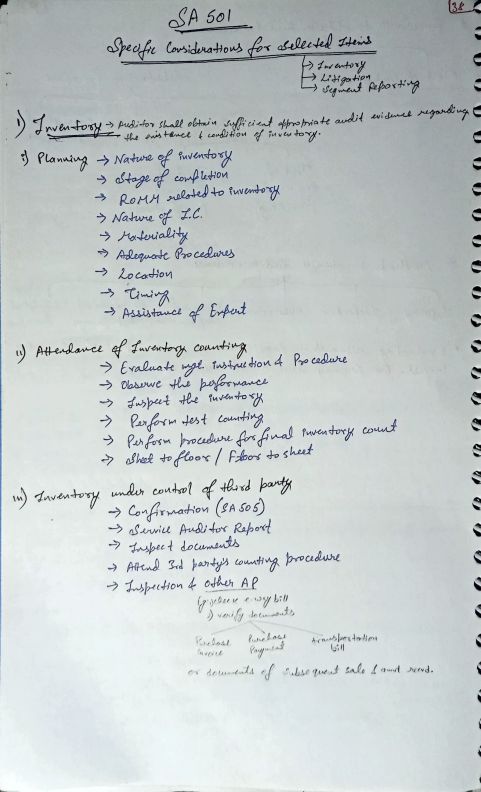 38
SA 501
Specific Considerations for Selected Items
→ Inventory
→ Litigation
→ Segment Reporting
1) Inventory → Auditor shall obtain sufficient appropriate audit evidence regarding
the existence & condition of inventory.
i) Planning → Nature of inventory
→ Stage of completion
→ ROMM related to inventory
→ Nature of I.C.
→ Materiality
→ Adequate Procedures
→ Location
→ Timing
→ Assistance of Expert
ii) Attendance of Inventory counting
→ Evaluate mgt. instruction & Procedure
→ Observe the performance
→ Inspect the inventory
→ Perform test counting
→ Perform procedure for final inventory count
→ Sheet to floor / Floor to sheet
iii) Inventory under control of third party
→ Confirmation (SA 505)
→ Service Auditor Report
→ Inspect documents
→ Attend 3rd party's counting procedure
→ Inspection & other AP
e-way bill
verify documents
Purchase Invoice Purchase Payment transportation bill
or documents of subsequent sale & amt recd.